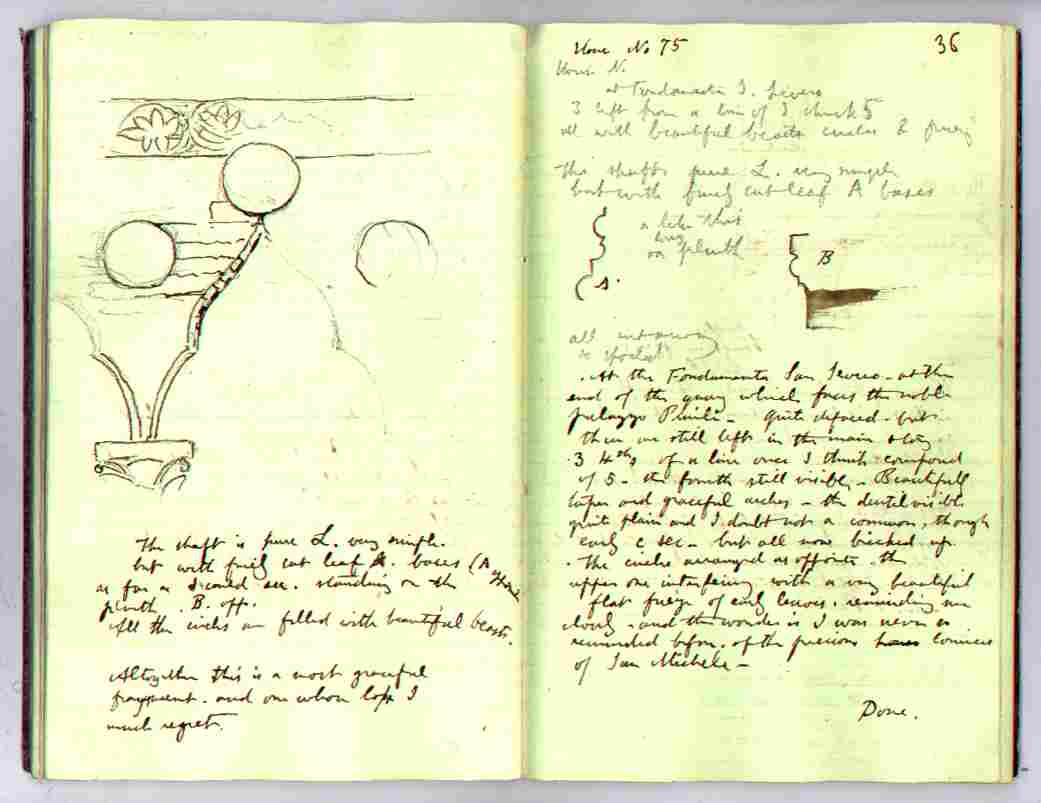 The shaft is pure L. very simple.
but with finely cut leaf A. bases (A opposite
as far as I could see. standing on the
plinth. B. opp.
All the circles are filled with beautiful beasts.
Altogether this is a most graceful
fragment. and one whose loss I
much regret.
House No 75
36
House N.
at Fondamenta S. Severo
3 left from a line of I think 5
all with beautiful beasts circles & frieze
The shafts pure L. very simple
but with finely cut leaf A bases
a like this
on plinth
A.
B
all
is spoiled
. At the Fondamenta San Severo - at the
end of the quay which faces the noble
palazzo - quite defaced - but
there are still left in the main story
. 3 4ths of a line once I think composed
of 5 - the fourth still visible - Beautifull
taper and graceful arches - the dentil visible
quite plain and I doubt not a common, though
early c sec - but all now bricked up.
. The circles arranged as opposite. the
upper one interfering with a very beautiful
flat frieze of early leaves. reminding me
closely - and the wonder is I was never so
reminded before. of the precious cornices
of San Michele -
Done.